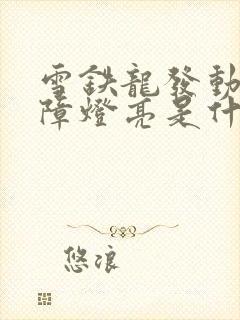 雪鉄龍發動
障燈亮是什
悠浪